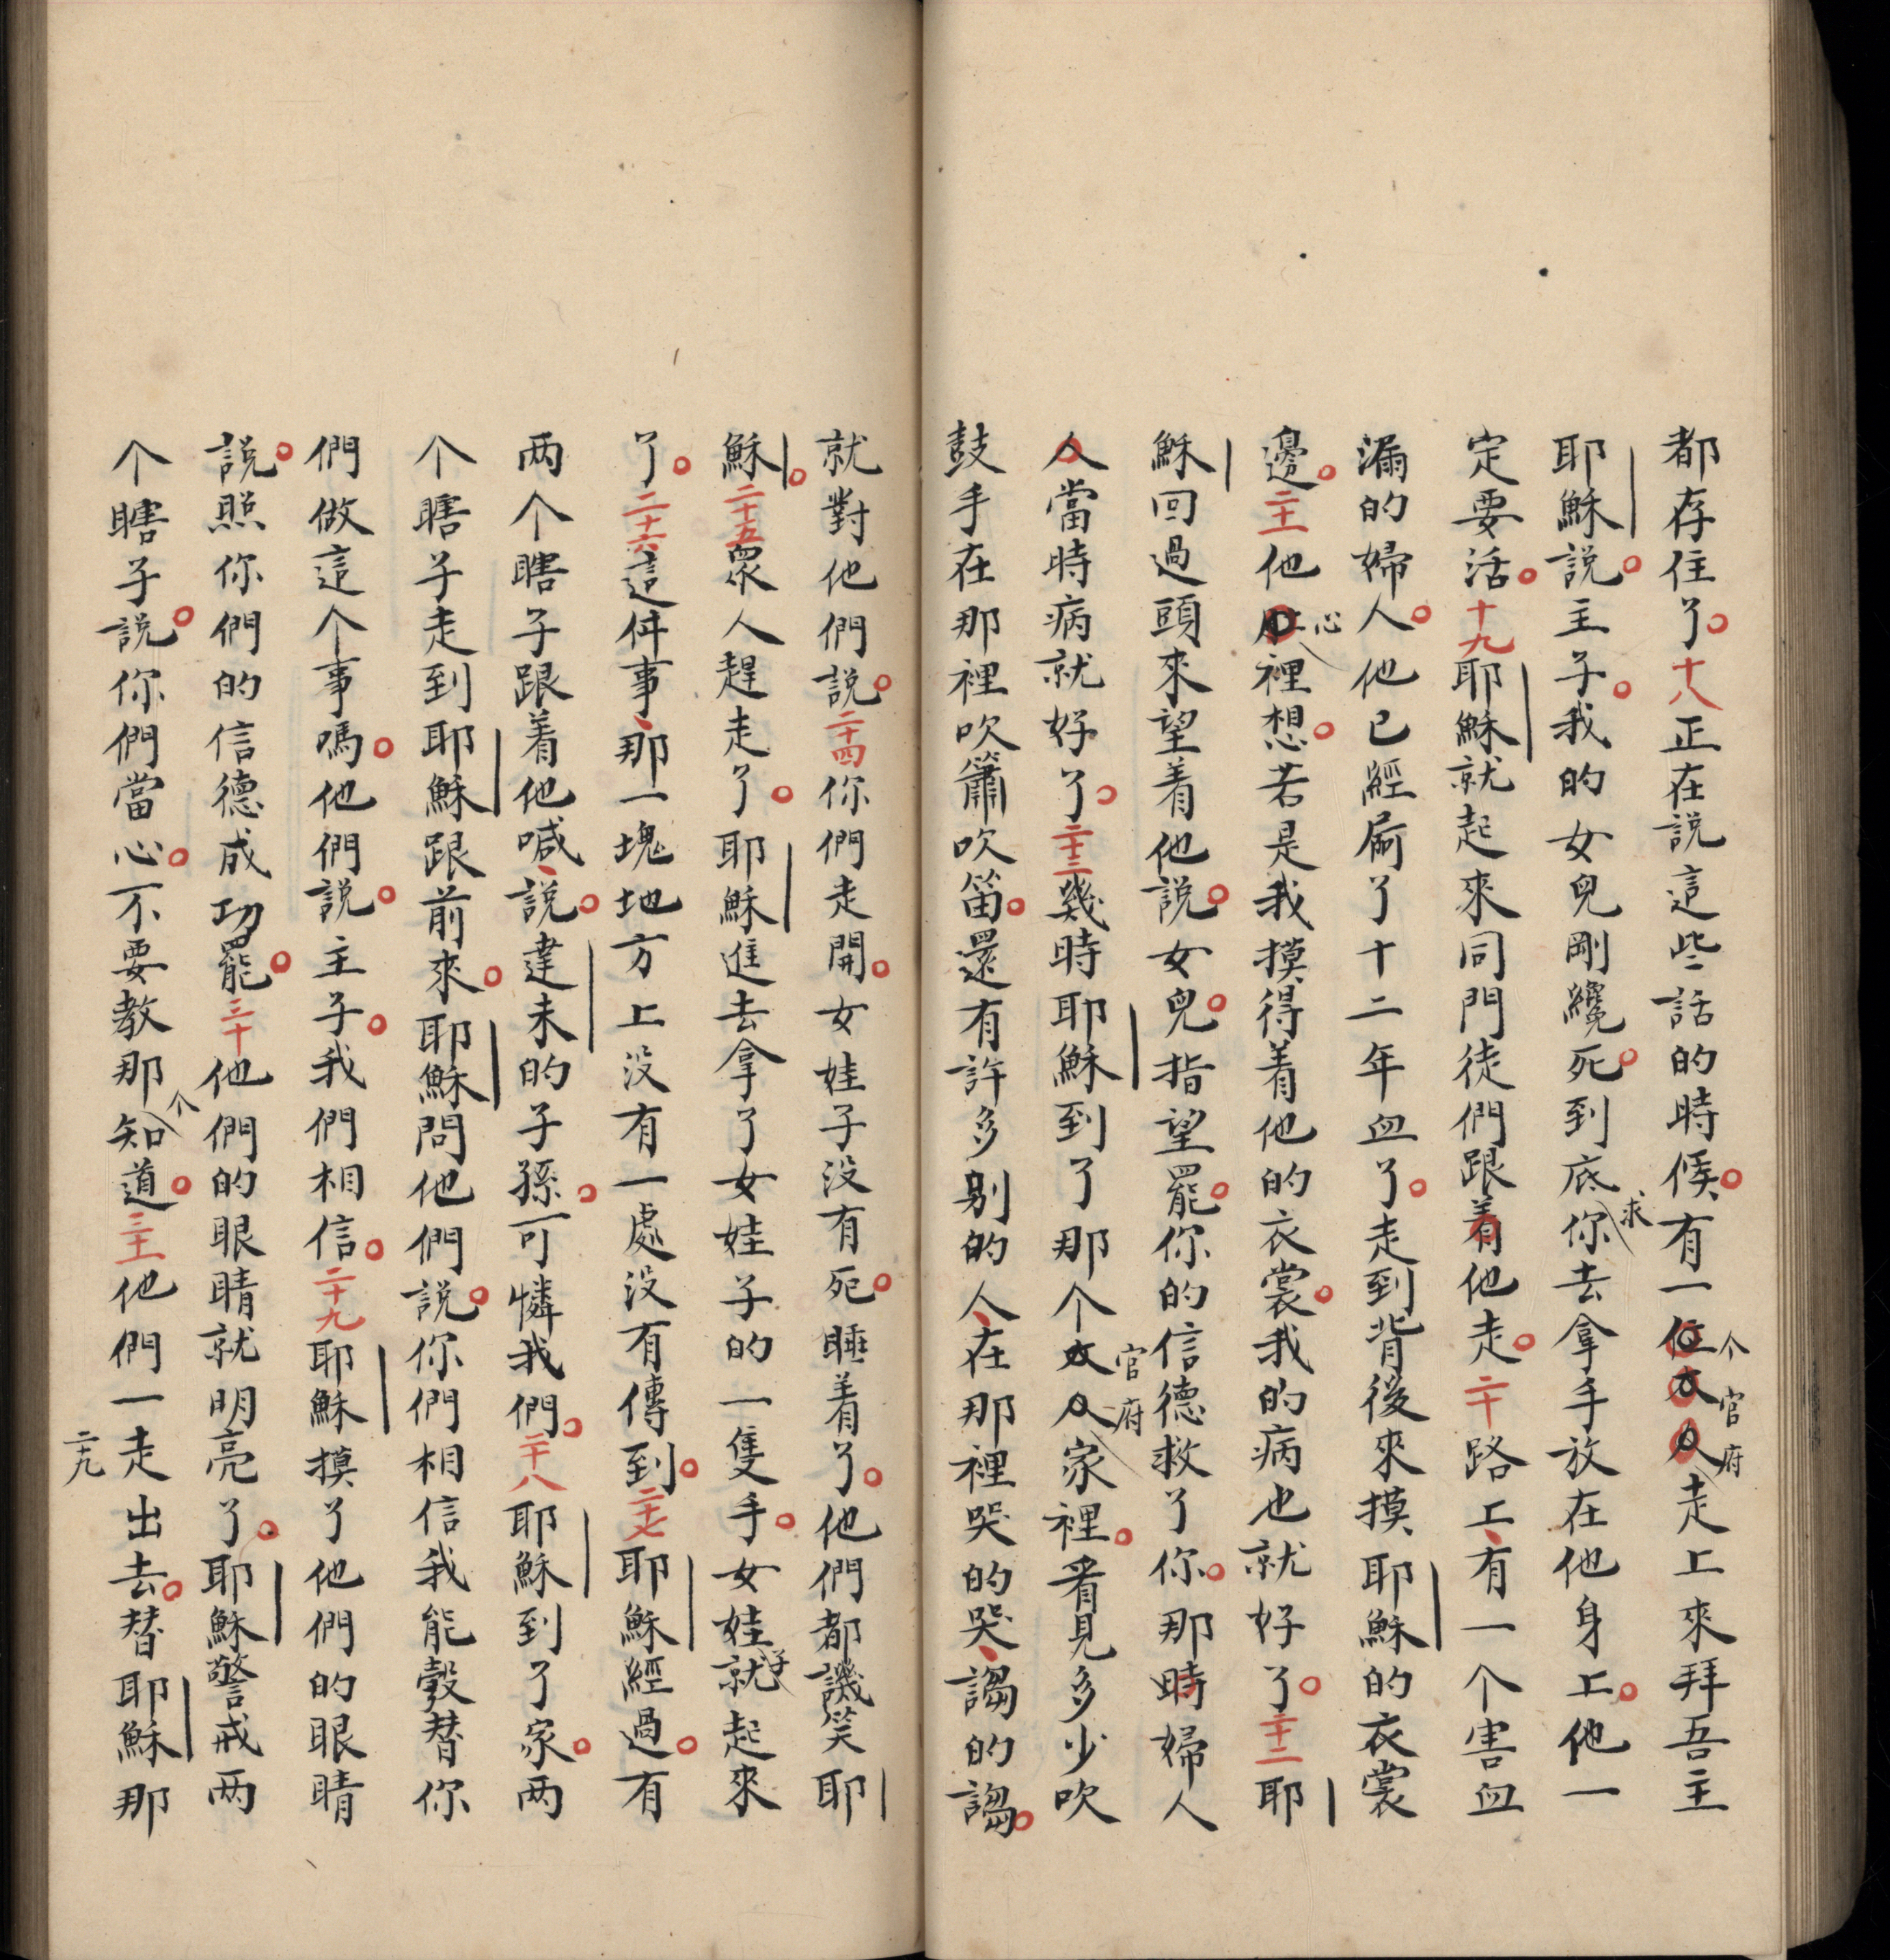 都存住了。十八正在説這些話的時候。有一个官府走上來拜吾主
耶穌説。主子。我的女兒剛纔死。到底求你去拿手放在他身上。他一
定要活。十九耶穌就起來同門徒們跟着他走。二十路上、有一个害血
漏的婦人。他已經屙了十二年血了。走到背後來摸耶穌的衣裳
邊。二十一他心裡想。若是我摸得着他的衣裳。我的病也就好了。二十二耶
穌回過頭來望着他説。女兒。指望罷。你的信德救了你。那時婦人
人當時病就好了。二十三幾時耶穌到了那个官府家裡。看見多少吹
鼓手在那裡吹簫吹笛。還有許多别的人、在那裡哭的哭、謅的謅。
就對他們説。二十四你們走開。女娃子没有死。睡着了。他們都譏笑耶
穌。二十五衆人趕走了。耶穌進去拿了女娃子的一隻手。女娃子就起來
了。二十六這件事、那一塊地方上没有一處没有傳到。二十七耶穌經過。有
兩个瞎子跟着他喊、説。達未的子孫。可憐我們。二十八耶穌到了家。兩
个瞎子走到耶穌跟前來。耶穌問他們説。你們相信我能彀替你
們做這个事嗎。他們説。主子。我們相信。二十九耶穌摸了他們的眼睛
説。照你們的信德成功罷。三十他們的眼睛就明亮了。耶穌警戒兩
个瞎子説。你們當心。不要教那个知道。三十一他們一走出去。替耶穌那
二十九